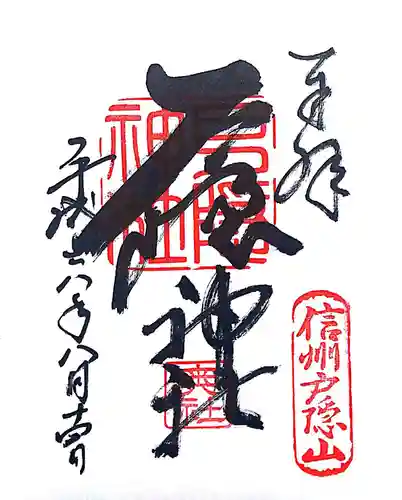 奉拝
信州戸隠山
戸隠神社
平成二十八年八月十四日